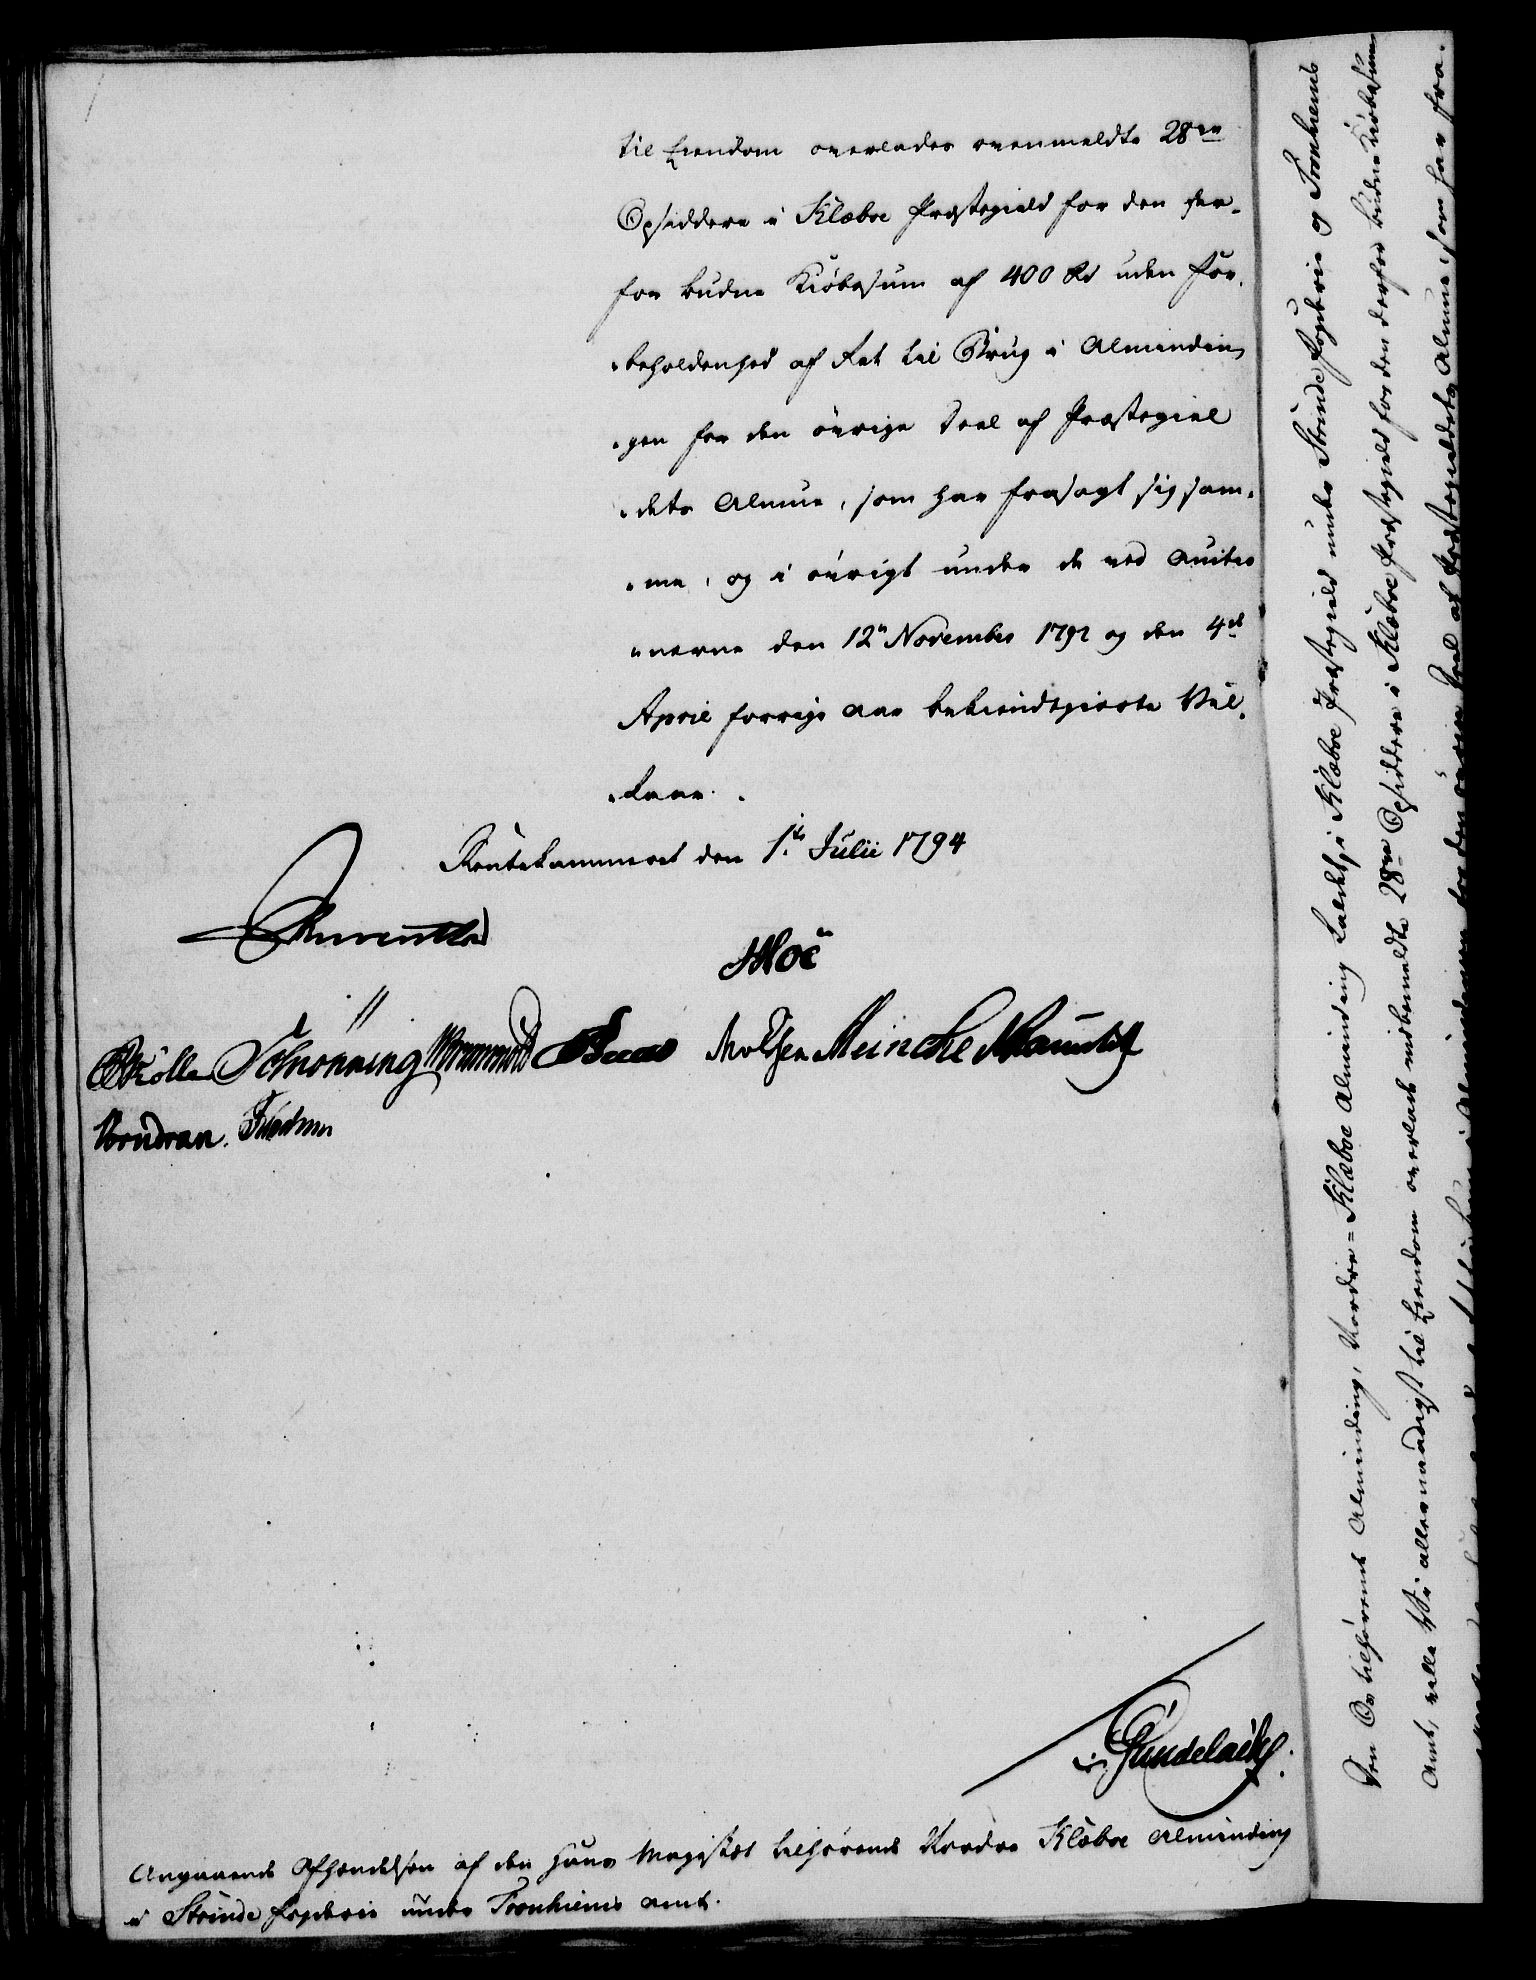 til Eiendom overlades ovenmeldte 28de
Opsiddere i Klæboe Præstegield for den der-
for budne Kiøbesum af 400 Rd uden For-
beholdenhed af Ret til Brug i Almindin-
gen for den øvrige Deel af Præstegiel-
dets Almue, som har frasagt sig sam-
me, og i øvrigt under de ved Auctio-
nerne den 12te November 1792 og den 4de
April forrige Aar bekiendtgiorte Vil-
kaar.
Rentekammeret den 1te Julii 1794
Hoë
Schrønning Meincke
Wendran.
Gundelach
Angaaende Afhændelsen af den Hans Majestæt tilhørende Nordre Klæboe Alminding
i Strinde Fogderie under Tronhiems Amt.
Den Os tilhørende Alminding, Nordre-Klæboe Alminding kaldet, i Klæboe Præstegield under Strinde Fogderie og Tronhiems
Amt, ville Vi allernaadigst til Eiendom overlade midbemeldte 28de Opsiddere i Klæboe Præstegield for den derfor budne Kiøbesum
for den øvrige Deel af Præstegieldets Almue, som har fra-